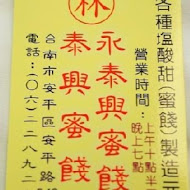 各種塩酸甜(蜜餞)製造
營業時間：
上午十點半
晚上七點
永泰興蜜餞
林
泰興蜜餞
台南市安平區安平路
電話：(〇六)二二八九二